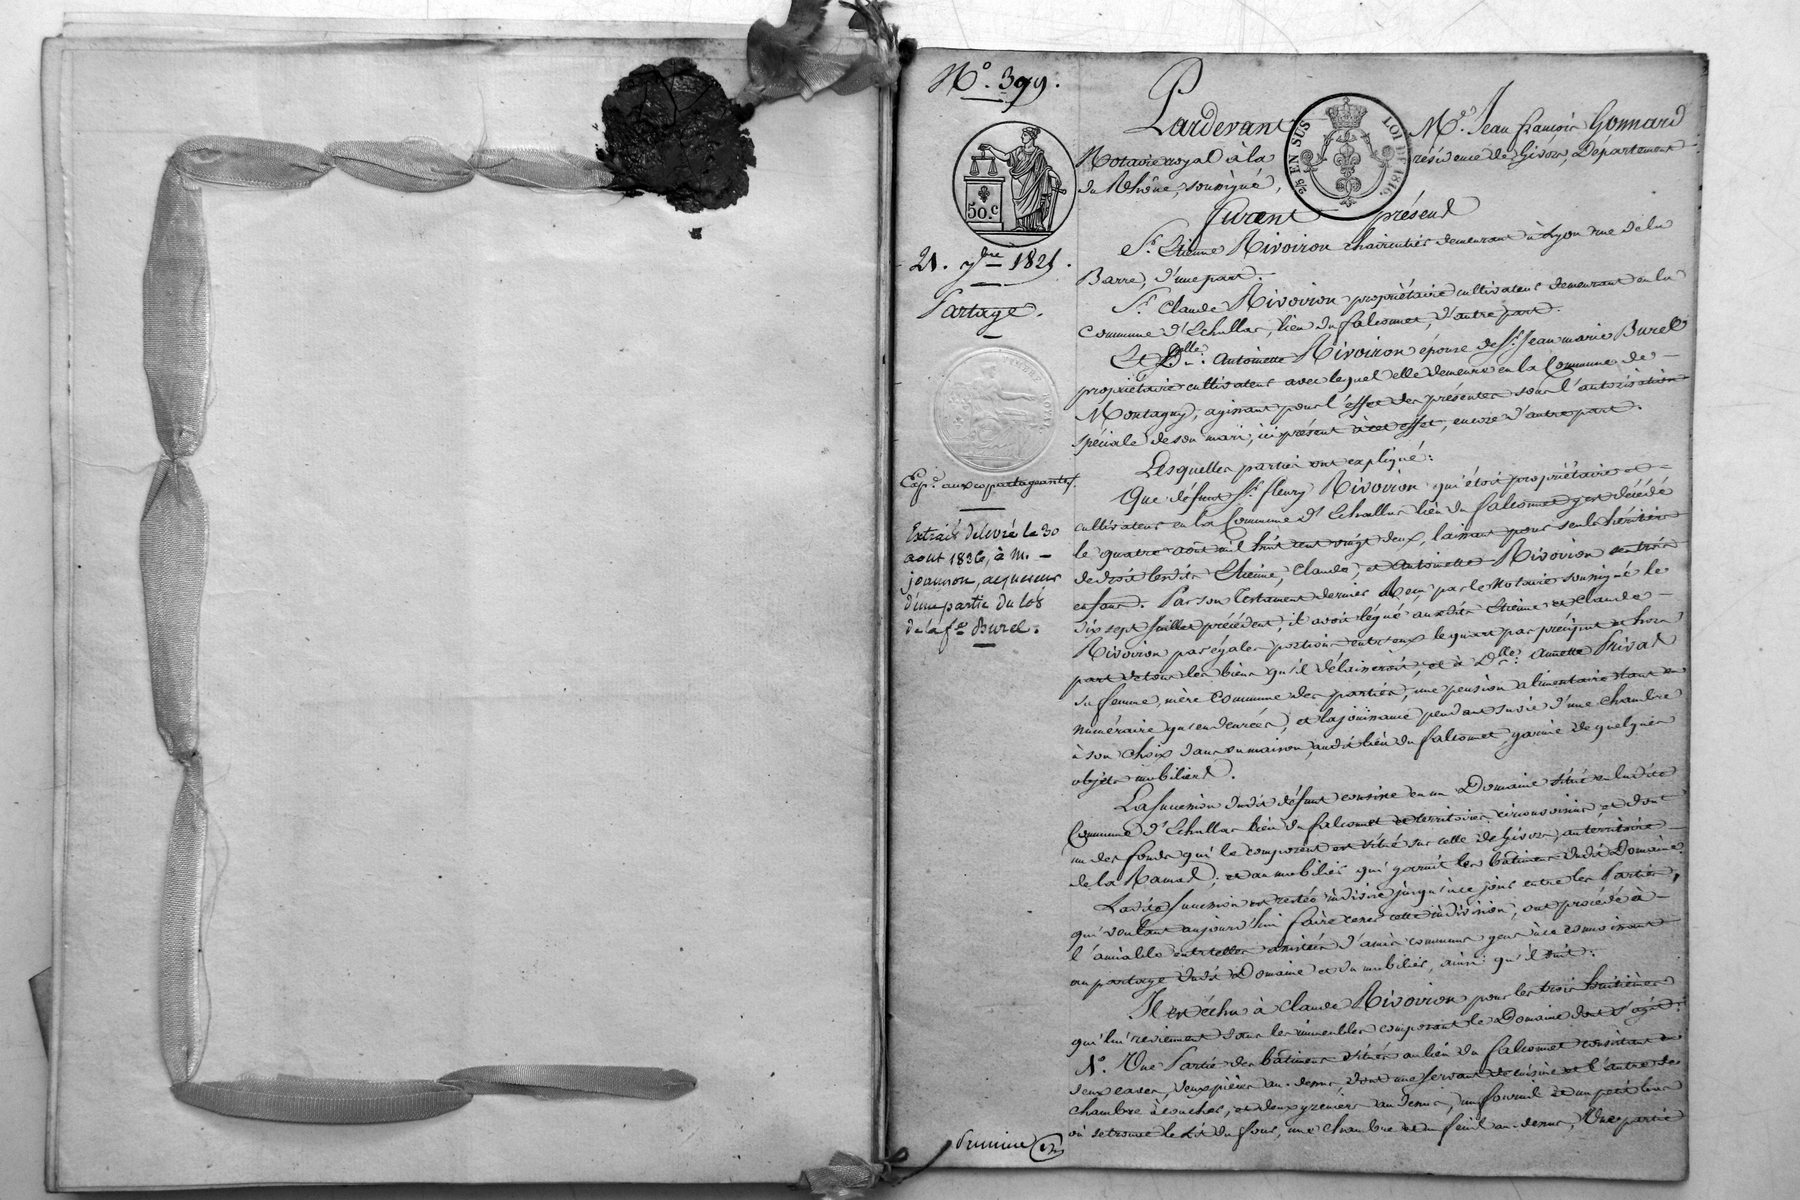 N.º 399.
50.c
21. 7bre 1825.
Partage.
Expn. aux copartageants.
Extrait délivré le 30
aout 1836, à M. -
joannon, acquéreur
d'une partie du lot
de la fe. Burel.
Premiere
Pardevant Me. Jean françois Gonnard
EN SUS LOI DE 1816.
Notaire royal à la résidence de Givors, Département
du Rhône, soussigné,
furent présens
Sr. Etienne Rivoiron chaircutier demeurant à Lyon rue de la
Barre, d'une part.
Sr. Claude Rivoiron propriétaire cultivateur demeurant en la
Commune d'Echallas, lieu du falconet, d'autre part.
Et Delle. Antoinette Rivoiron épouse de Sr. Jean marie Burel
propriétaire cultivateur avec lequel elle demeure en la Commune de -
Montagny, agissant pour l'effet des présentes sous l'autorisation
spéciale de son mari, ici présent à cet effet, encore d'autre part.
Lesquelles parties ont expliqué:
Que défunt Sr. fleury Rivoiron qui étoit propriétaire et -
cultivateur en la Commune d'Echallas lieu du falconet y est décédé
le quatre août mil huit cent vingt deux, laissant pour seuls héritiers
de droit lesdits Etienne, Claude, et Antoinette Rivoiron ses trois
enfans. Par son testament dernier reçu par le Notaire soussigné le
dix sept Juillet précédent, il avoit légué auxdits Etienne et Claude -
Rivoiron par égales portions entr'eux le quart par préciput et hors
part de tous les biens qu'il délaisseroit, et à Delle. Annette Privat
sa femme, mère commune des parties, une pension alimentaire tant en
numéraire qu'en denrées, et la jouissance pendant sa vie d'une chambre
à son choix dans sa maison, audit lieu du falconet garnie de quelques
objets mobiliers.
La succession dudit défunt consiste en un Domaine situé en ladite
Commune d'Echallas lieu du falconet et territoires circonvoisins et dont
un des fonds qui le composent est situé sur celle de Givors, au territoire -
de la Ramat; et au mobilier qui garnit les bâtimens dudit Domaine.
Ladite succession est restée indivise jusqu'à ce jour entre les Parties,
qui voulant aujourd'hui faire cesser cette indivision, ont procédé à -
l'amiable entr'elles assistées d'amis communs gens à ce connoissant
au partage dudit Domaine et du mobilier, ainsi qu'il suit.
Il est échu à Claude Rivoiron pour les trois huitièmes
qui lui reviennent dans les immeubles composant le Domaine dont s'agit:
1.º Une Partie des bâtimens situés au lieu du falconet consistant en
deux caves, deux pièces au-dessus, dont une servant de cuisine et l'autre de
chambre à coucher, et deux greniers au-dessus, un fournil et un petit lieu
où se trouve le lit du four, une chambre et un fenil au-dessus, Une partie